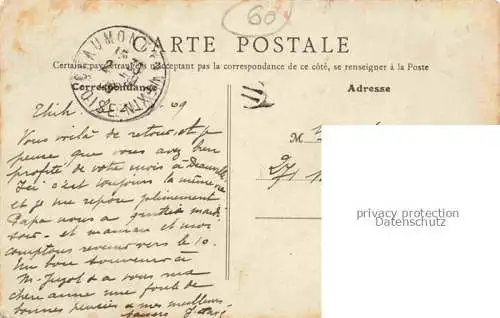 60
CARTE POSTALE
Certains pays étrangers n'acceptant pas la correspondance de ce côté, se renseigner à la Poste
Correspondance
Adresse
BEAUMONT
OISE
09
M
Vous voilà de retour, et je
pense que vous avez bien
profité de votre mois à Deauville
Ici c'est toujours la même vie
et je me repose pleinement
Papa nous a quittés mardi
soir et maman et moi
comptons revenir vers le 10.
Un bon souvenir à
M. et à vous ma
chère anne une foule de
bonnes pensées a mes meilleurs
privacy protection
Datenschutz